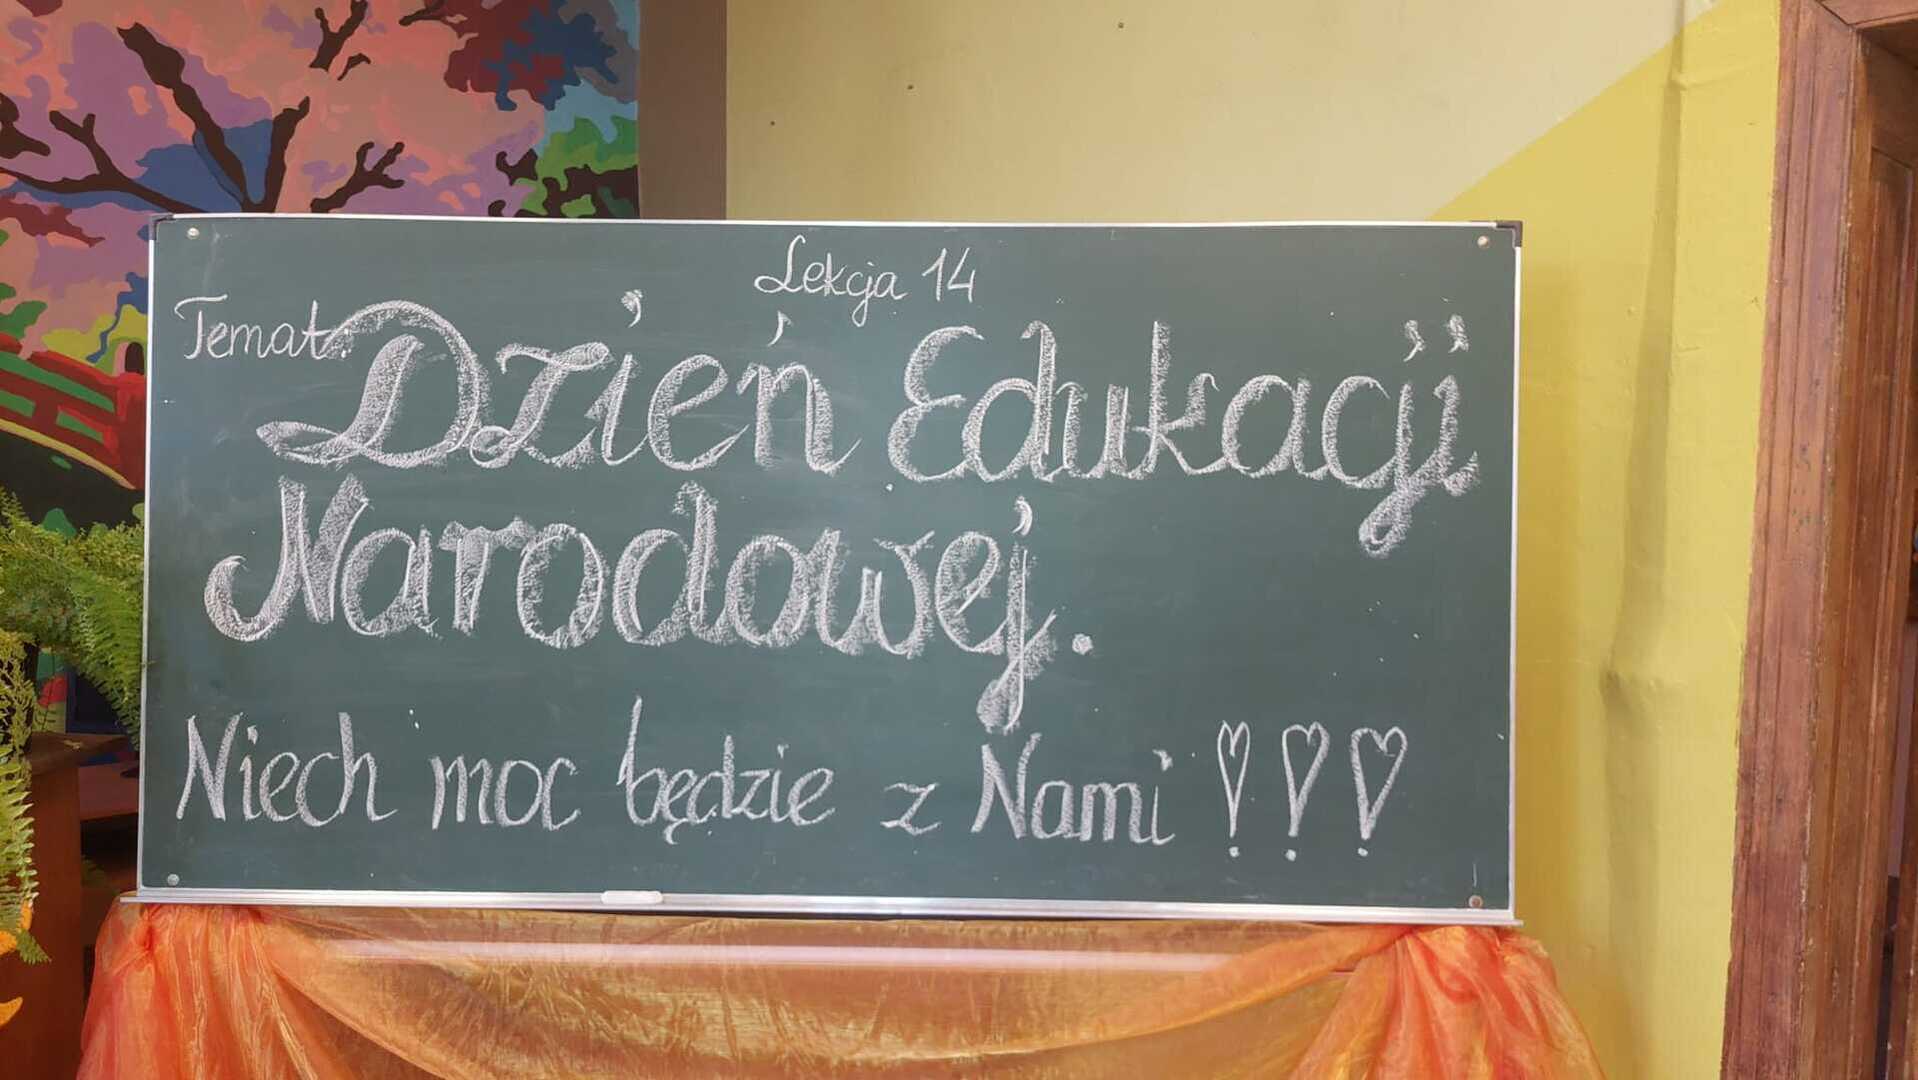 Lekcja 14
Temat: Dzień Edukacji
Narodowej.
Niech moc będzie z Nami !!!